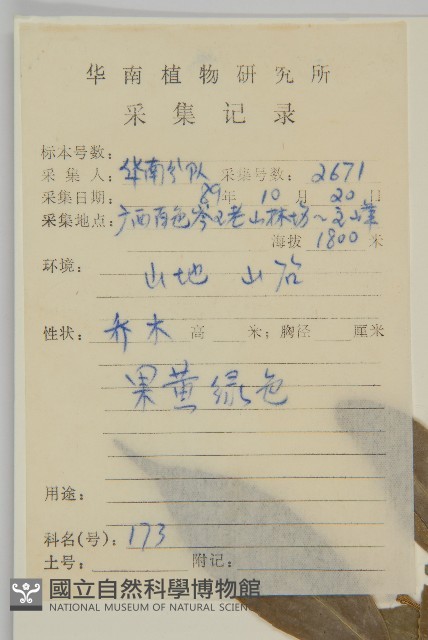 华南植物研究所
采集记录
标本号数:
采集人: 华南分队 采集号数: 2671
采集日期: 89年 10 月 20 日
采集地点: 广西百色岑王老山林场~
海拔 1800 米
环境: 山地 山谷
性状: 乔木 高 米; 胸径 厘米
果黄绿色
用途:
科名(号): 173
土号: 附记:
國立自然科學博物館
NATIONAL MUSEUM OF NATURAL SCIEN